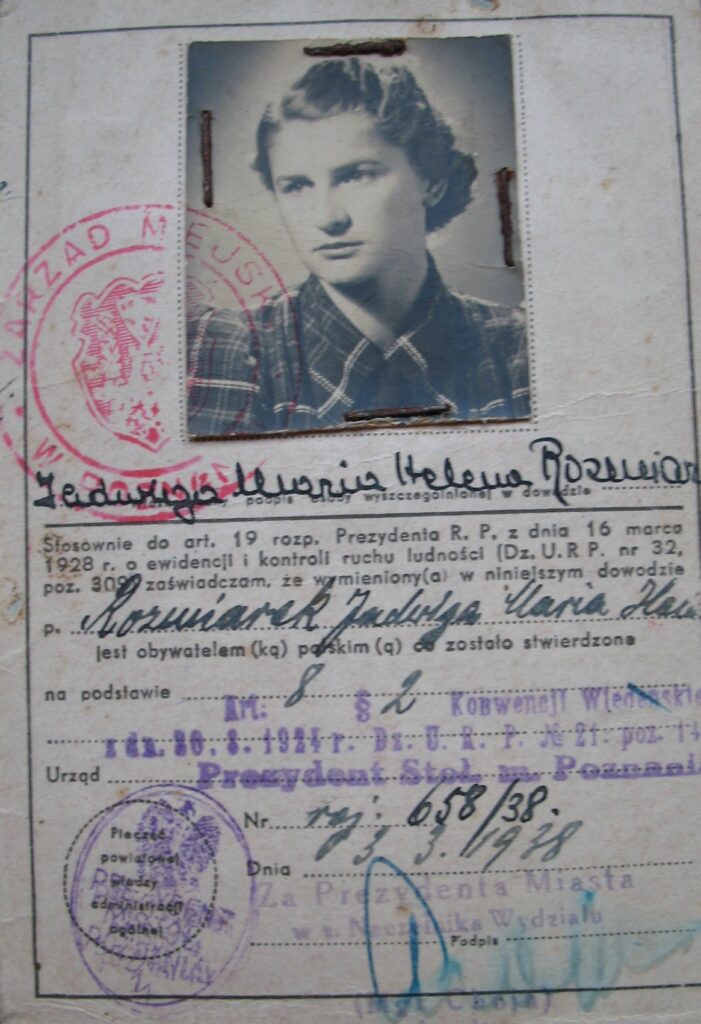 ZARZĄD MIEJSKI
Jadwiga Maria Helena Rozmiar
podpis osoby wyszczególnionej w dowodzie
Stosownie do art. 19 rozp. Prezydenta R. P. z dnia 16 marca
1928 r. o ewidencji i kontroli ruchu ludności (Dz. U. R P. nr 32,
poz. 309) zaświadczam, że wymieniony(a) w niniejszym dowodzie
p. Rozmiarek Jadwiga Maria
jest obywatelem (ką) polskim (ą) co zostało stwierdzone
na podstawie Art. 8 § 2 Konwencji Wiedeńskie
z dn. 30. 8. 1924 r. Dz. U. R. P. № 21. poz. 14
Urząd Prezydent Stoł. m. Poznani
Nr. 658/38.
Dnia 3. 3. 1938
Pieczęć
powiatowej
władzy
administracji
ogólnej
Za Prezydenta Miasta
w z. Naczelnika Wydziału
Podpis